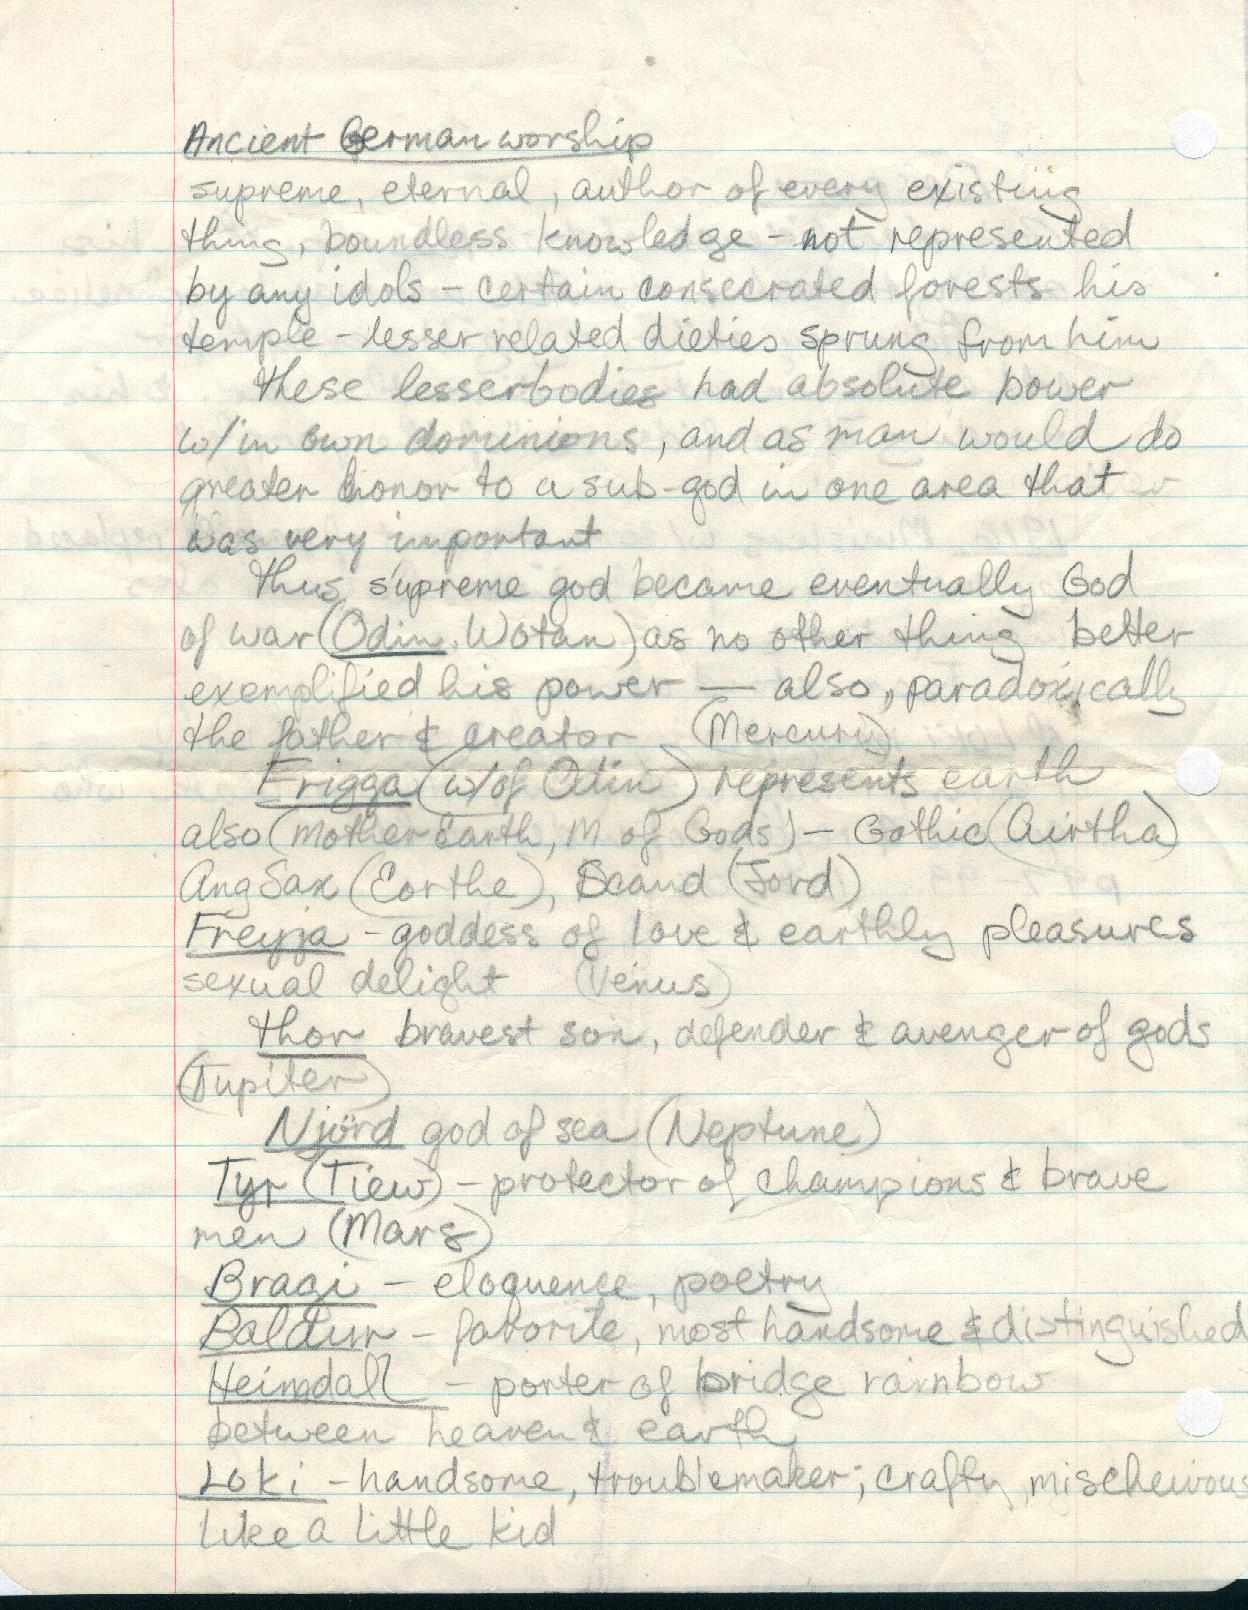 Ancient German worship
supreme, eternal, author of every existing
thing, boundless knowledge - not represented
by any idols - certain consecrated forests his
temple - lesser related dieties sprung from him
These lesser bodies had absolute power
w/in own dominions, and as man would do
greater honor to a sub-god in one area that
was very important
Thus supreme god became eventually God
of war (Odin, Wotan) as no other thing better
exemplified his power — also, paradoxically
the father & creator (Mercury)
Frigga (w/of Odin) represents earth
also (Mother Earth, M of Gods) - Gothic (Airtha)
Ang Sax (Eorthe), Scand (Jord)
Freyja - goddess of love & earthly pleasures
sexual delight (Venus)
Thor bravest son, defender & avenger of gods
(Jupiter)
Njörd god of sea (Neptune)
Tyr (Tiew) - protector of champions & brave
men (Mars)
Bragi - eloquence, poetry
Baldur - faborite, most handsome & distinguished
Heimdall - porter of bridge rainbow
between heaven & earth
Loki - handsome, troublemaker; crafty, mischeivous
like a little kid